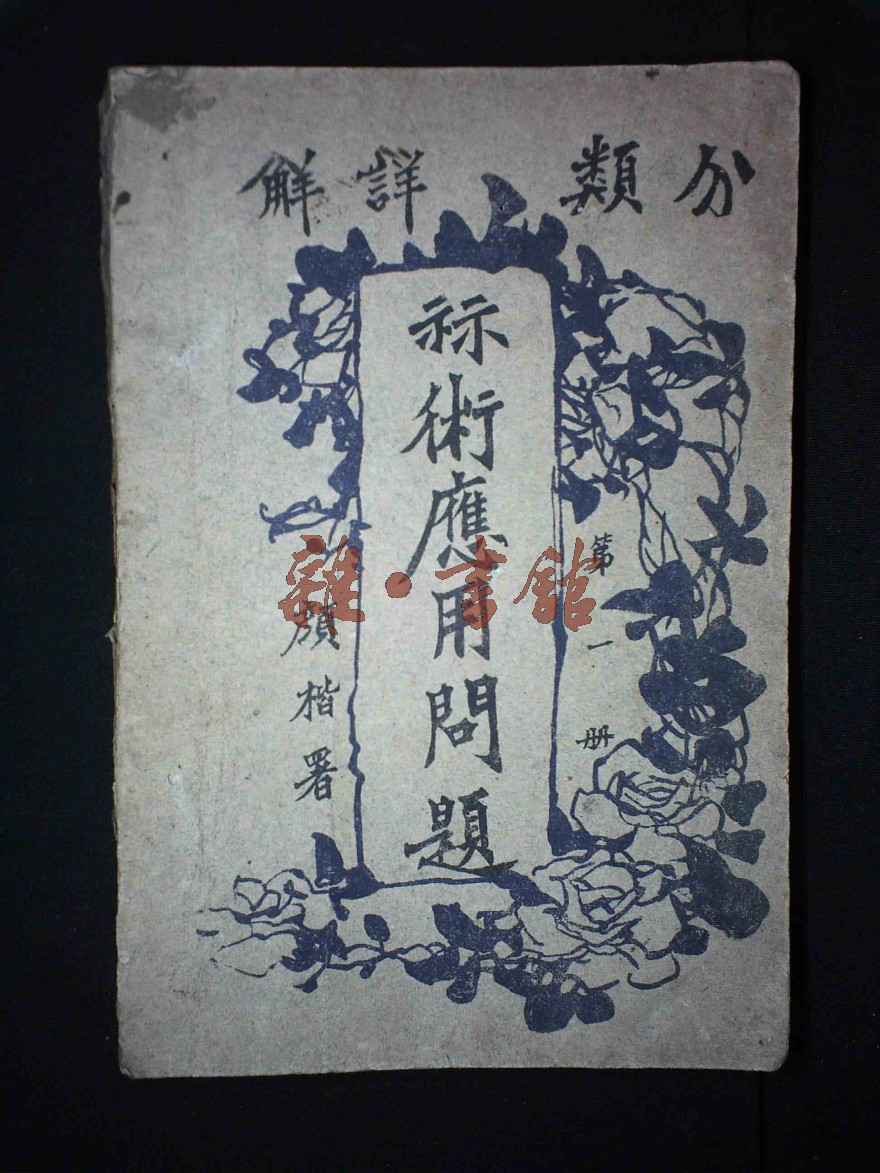 分類詳觧
第一册
祘術應用問題
顏楷署
雜·書館